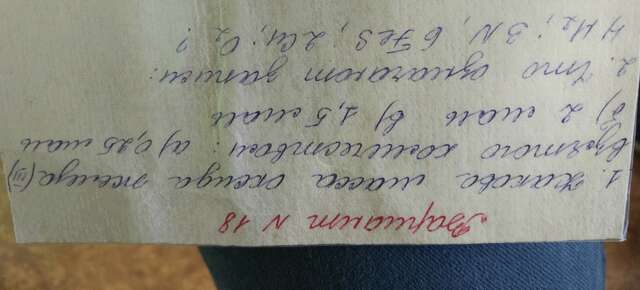 Вариант N 18
1. Какова масса оксида железа (III)
взятого количеством: а) 0,25 моль
б) 2 моль в) 1,5 моль
2. Что означают записи:
4 H₂; 3 N; 6 FeS; 2 Cu; O₂?